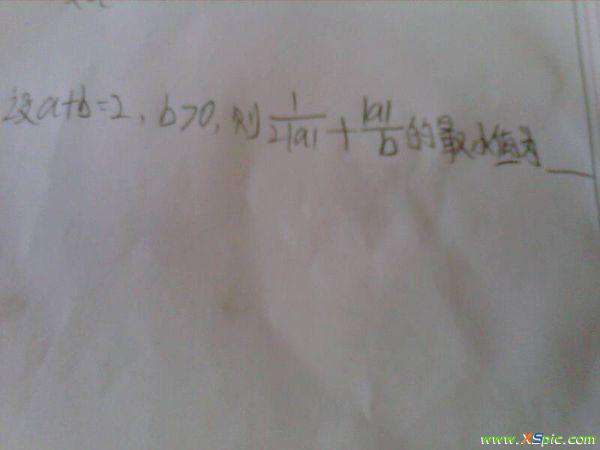 设a+b=2, b>0, 则 \frac{1}{2|a|} + \frac{|a|}{b} 的最小值为___
www.XSpic.com